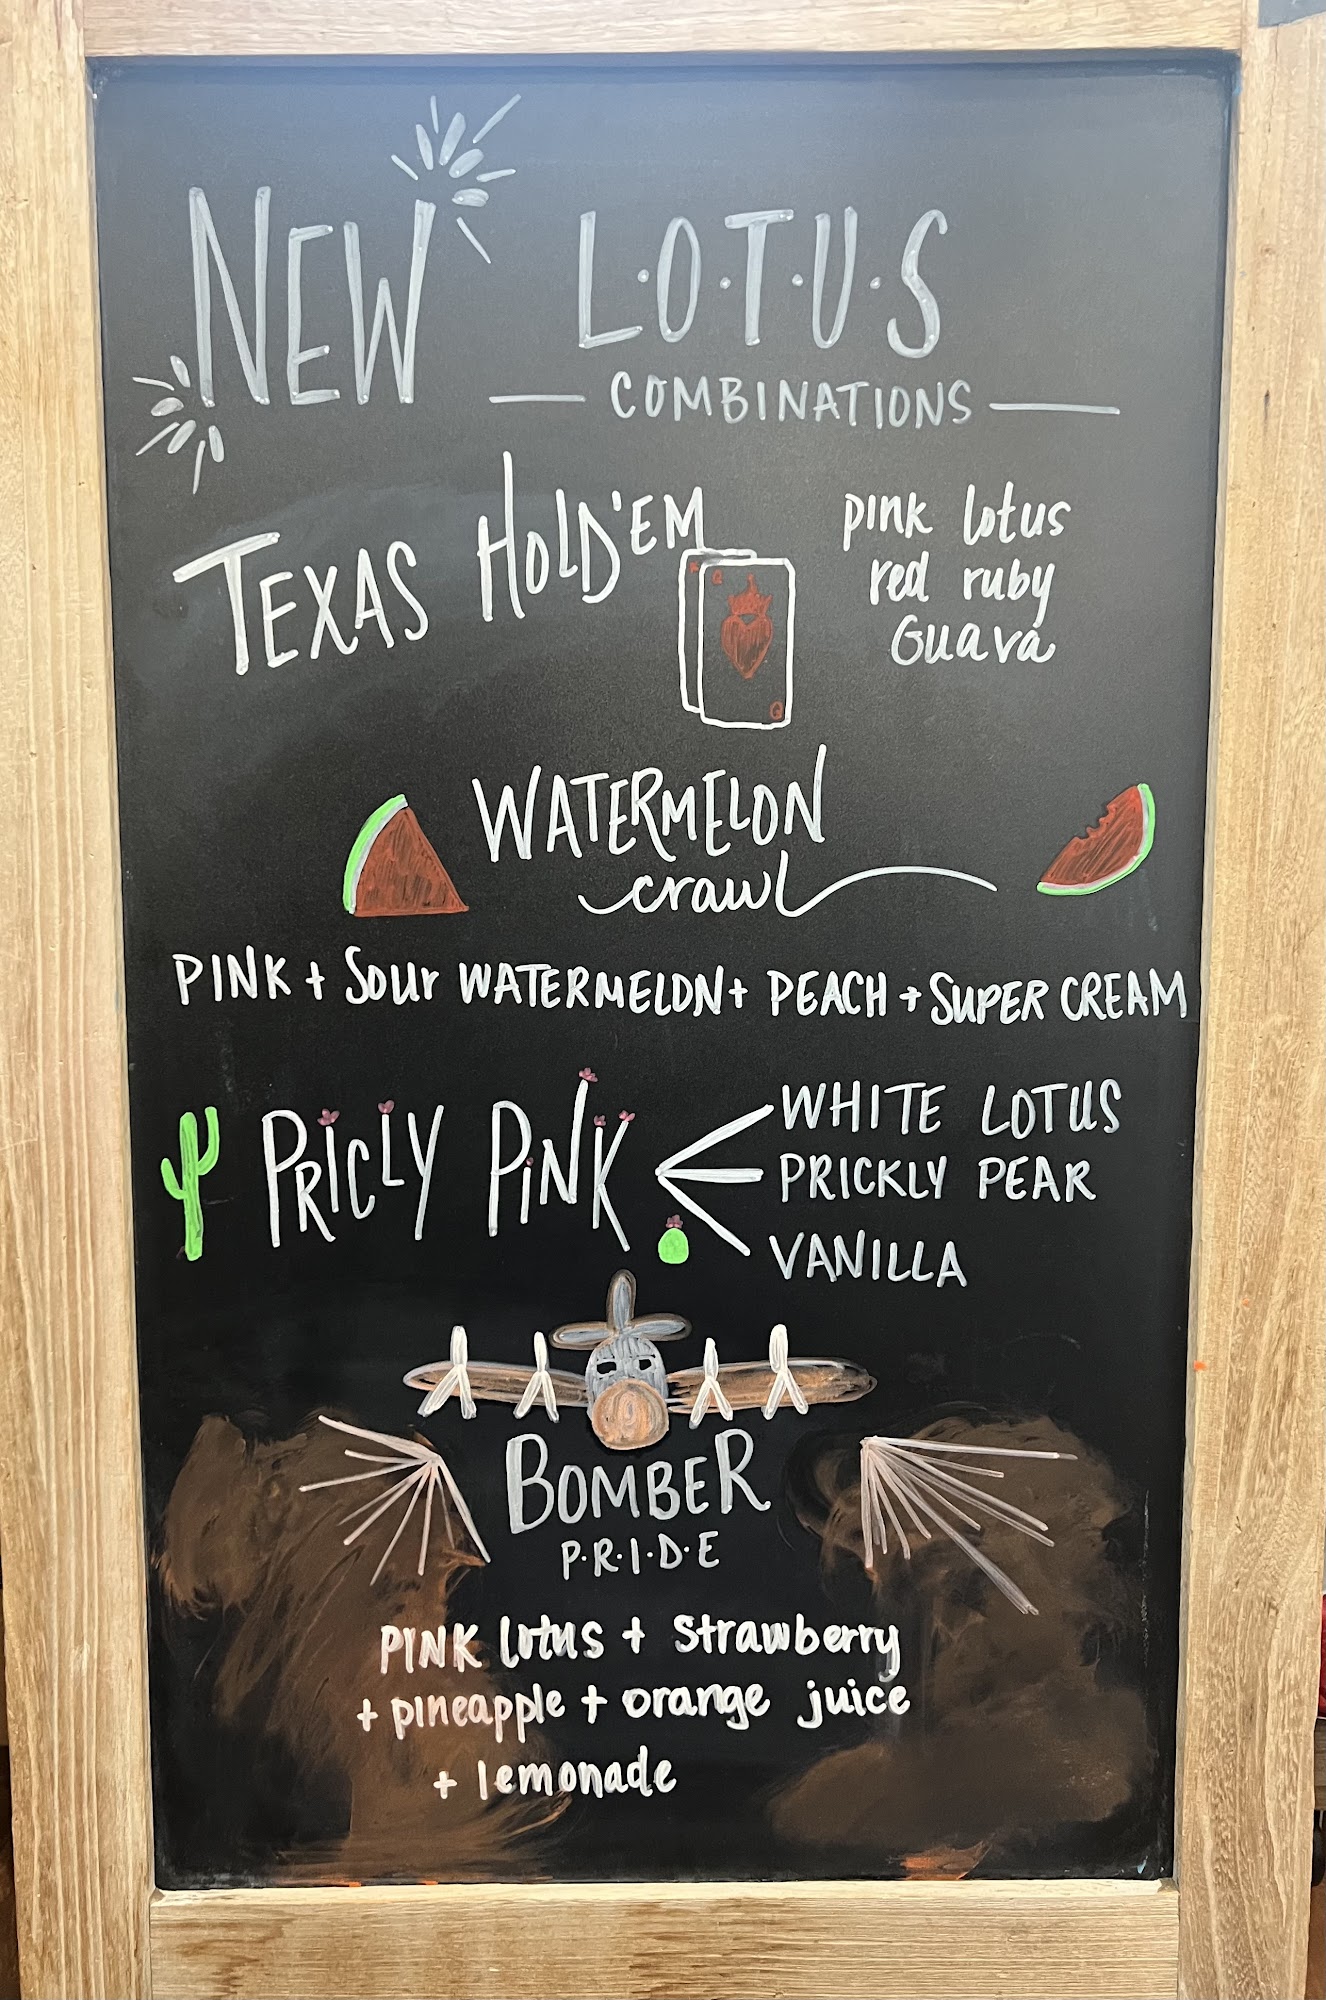 NEW L·O·T·U·S
COMBINATIONS
TEXAS HOLD'EM
pink lotus
red ruby
Guava
Q
Q
WATERMELON
crawl
PINK + Sour WATERMELON + PEACH + SUPER CREAM
PRICLY PiNK
WHITE LOTUS
PRICKLY PEAR
VANILLA
BOMBER
P·R·I·D·E
PINK lotus + Strawberry
+ pineapple + orange juice
+ lemonade